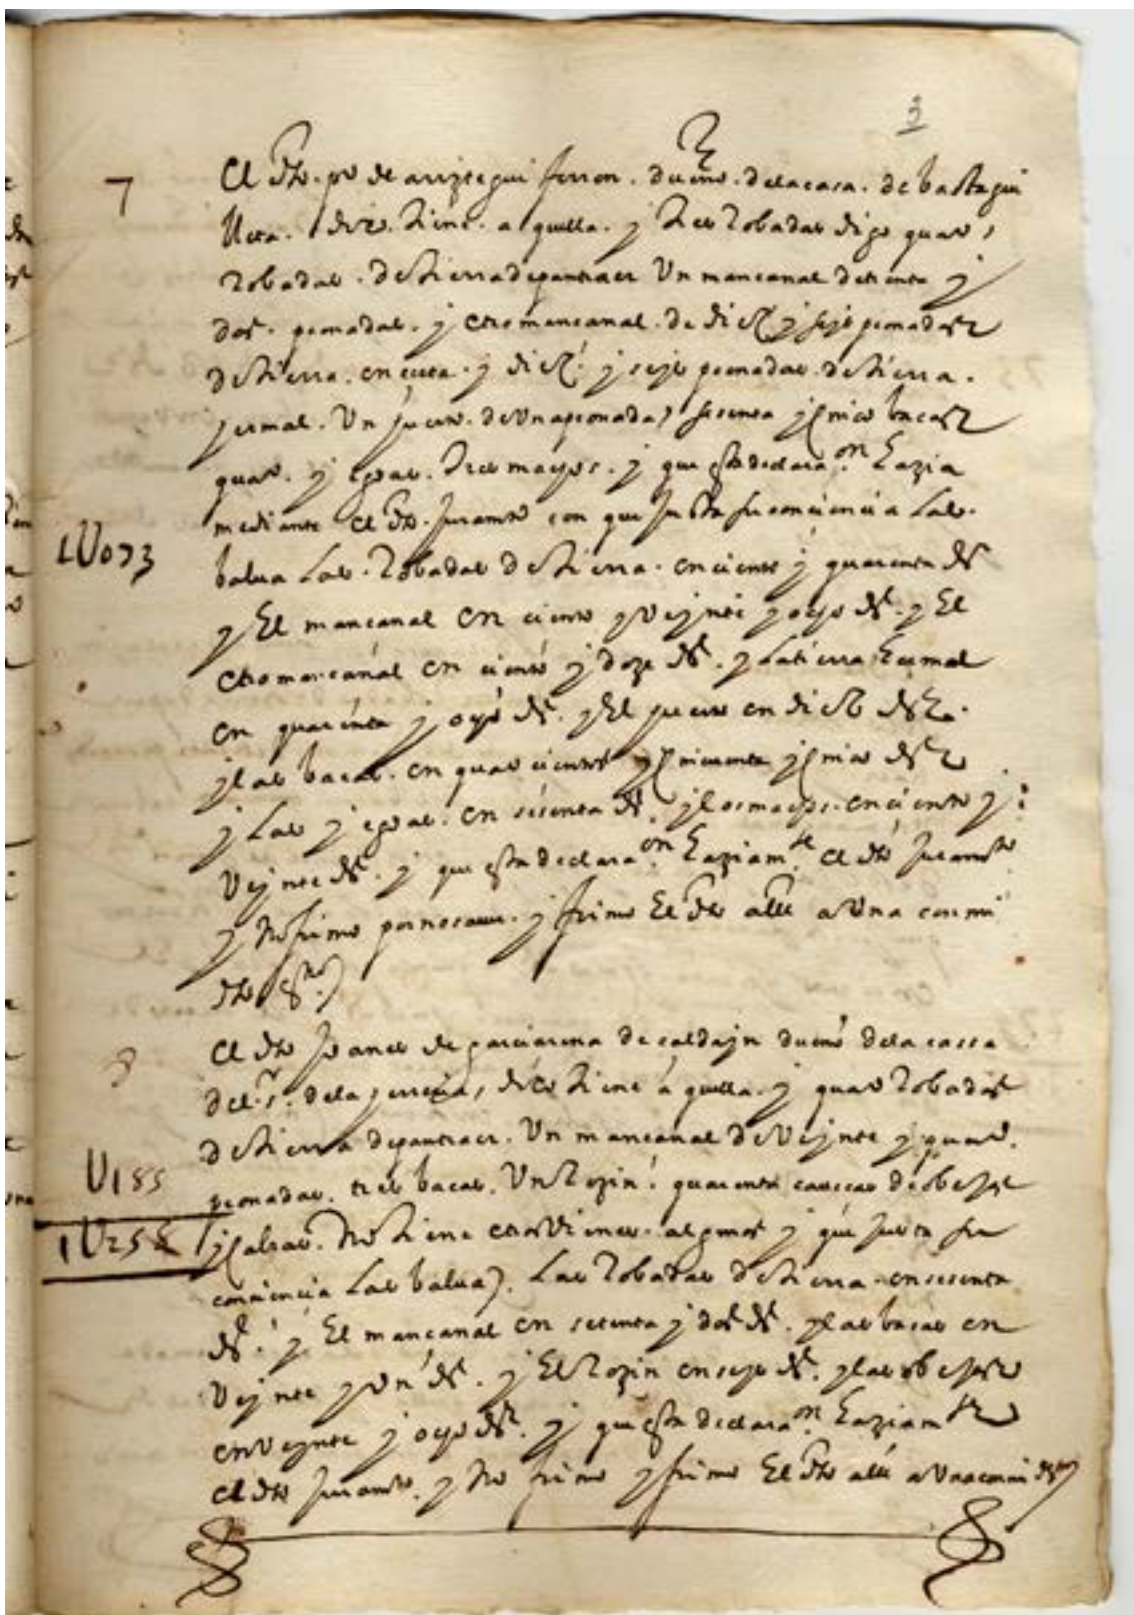 3
7
El dho po de arizsegui ferron. dueño. dela casa. de bastagui
dixo. tiene. a quella. y tres Robadas digo quatro
Robadas. de tierra de pan traer Un mancanal de treinta y
dos. peonadas. y otro mancanal. de diez y seys peonadas
de tierra. en cuta. y diez y seys peonadas. de tierra.
yermal. Un guerto. de una peonada, sesenta y cinco bacas
quatro. y eguas. tres macyos. y que esta declaraon hazia
mediante el dho. juramto con que justa su conciencia las.
balua las. Robadas de tierra. en ciento y quarenta ds
y El mancanal en ciento y veynte y ocho ds. y El
otro mancanal en ciento y doze ds. y la tierra hermal
en quarenta y ocho ds. y El guerto en diez ds.
y las bacas. en quatrocientos y cinquenta y cinco ds
y Las yeguas. en sesenta ds. y los machos. en ciento y
Veynte ds. y que esta declaraon hazia mte el dho juramto
y no firmo por no saver. y firmo El dho alle a Una con mi
dho esno
1U073
8
El dho joanes de garciarena de saldayn dueño dela cassa
del s. dela dixo tiene a quella. y quatro Robadas
de tierra de pan traer. Un mancanal de veynte y quatro.
peonadas. tres bacas. Un Rozin. quarenta cavecas de obejas
y cabras. no tiene otros vienes. algunos y que justa su
conciencia las balua. Las Robadas de tierra en sesenta
ds. y El mancanal en setenta y dos ds. y las bacas en
Veynte y un ds. y El Rozin en seys ds. y las obejas
en veynte y ocho ds. y que esta declaraon hazia mte
el dho juramto. y no firmo y firmo El dho alle a Una con mi esno
U185
1U258